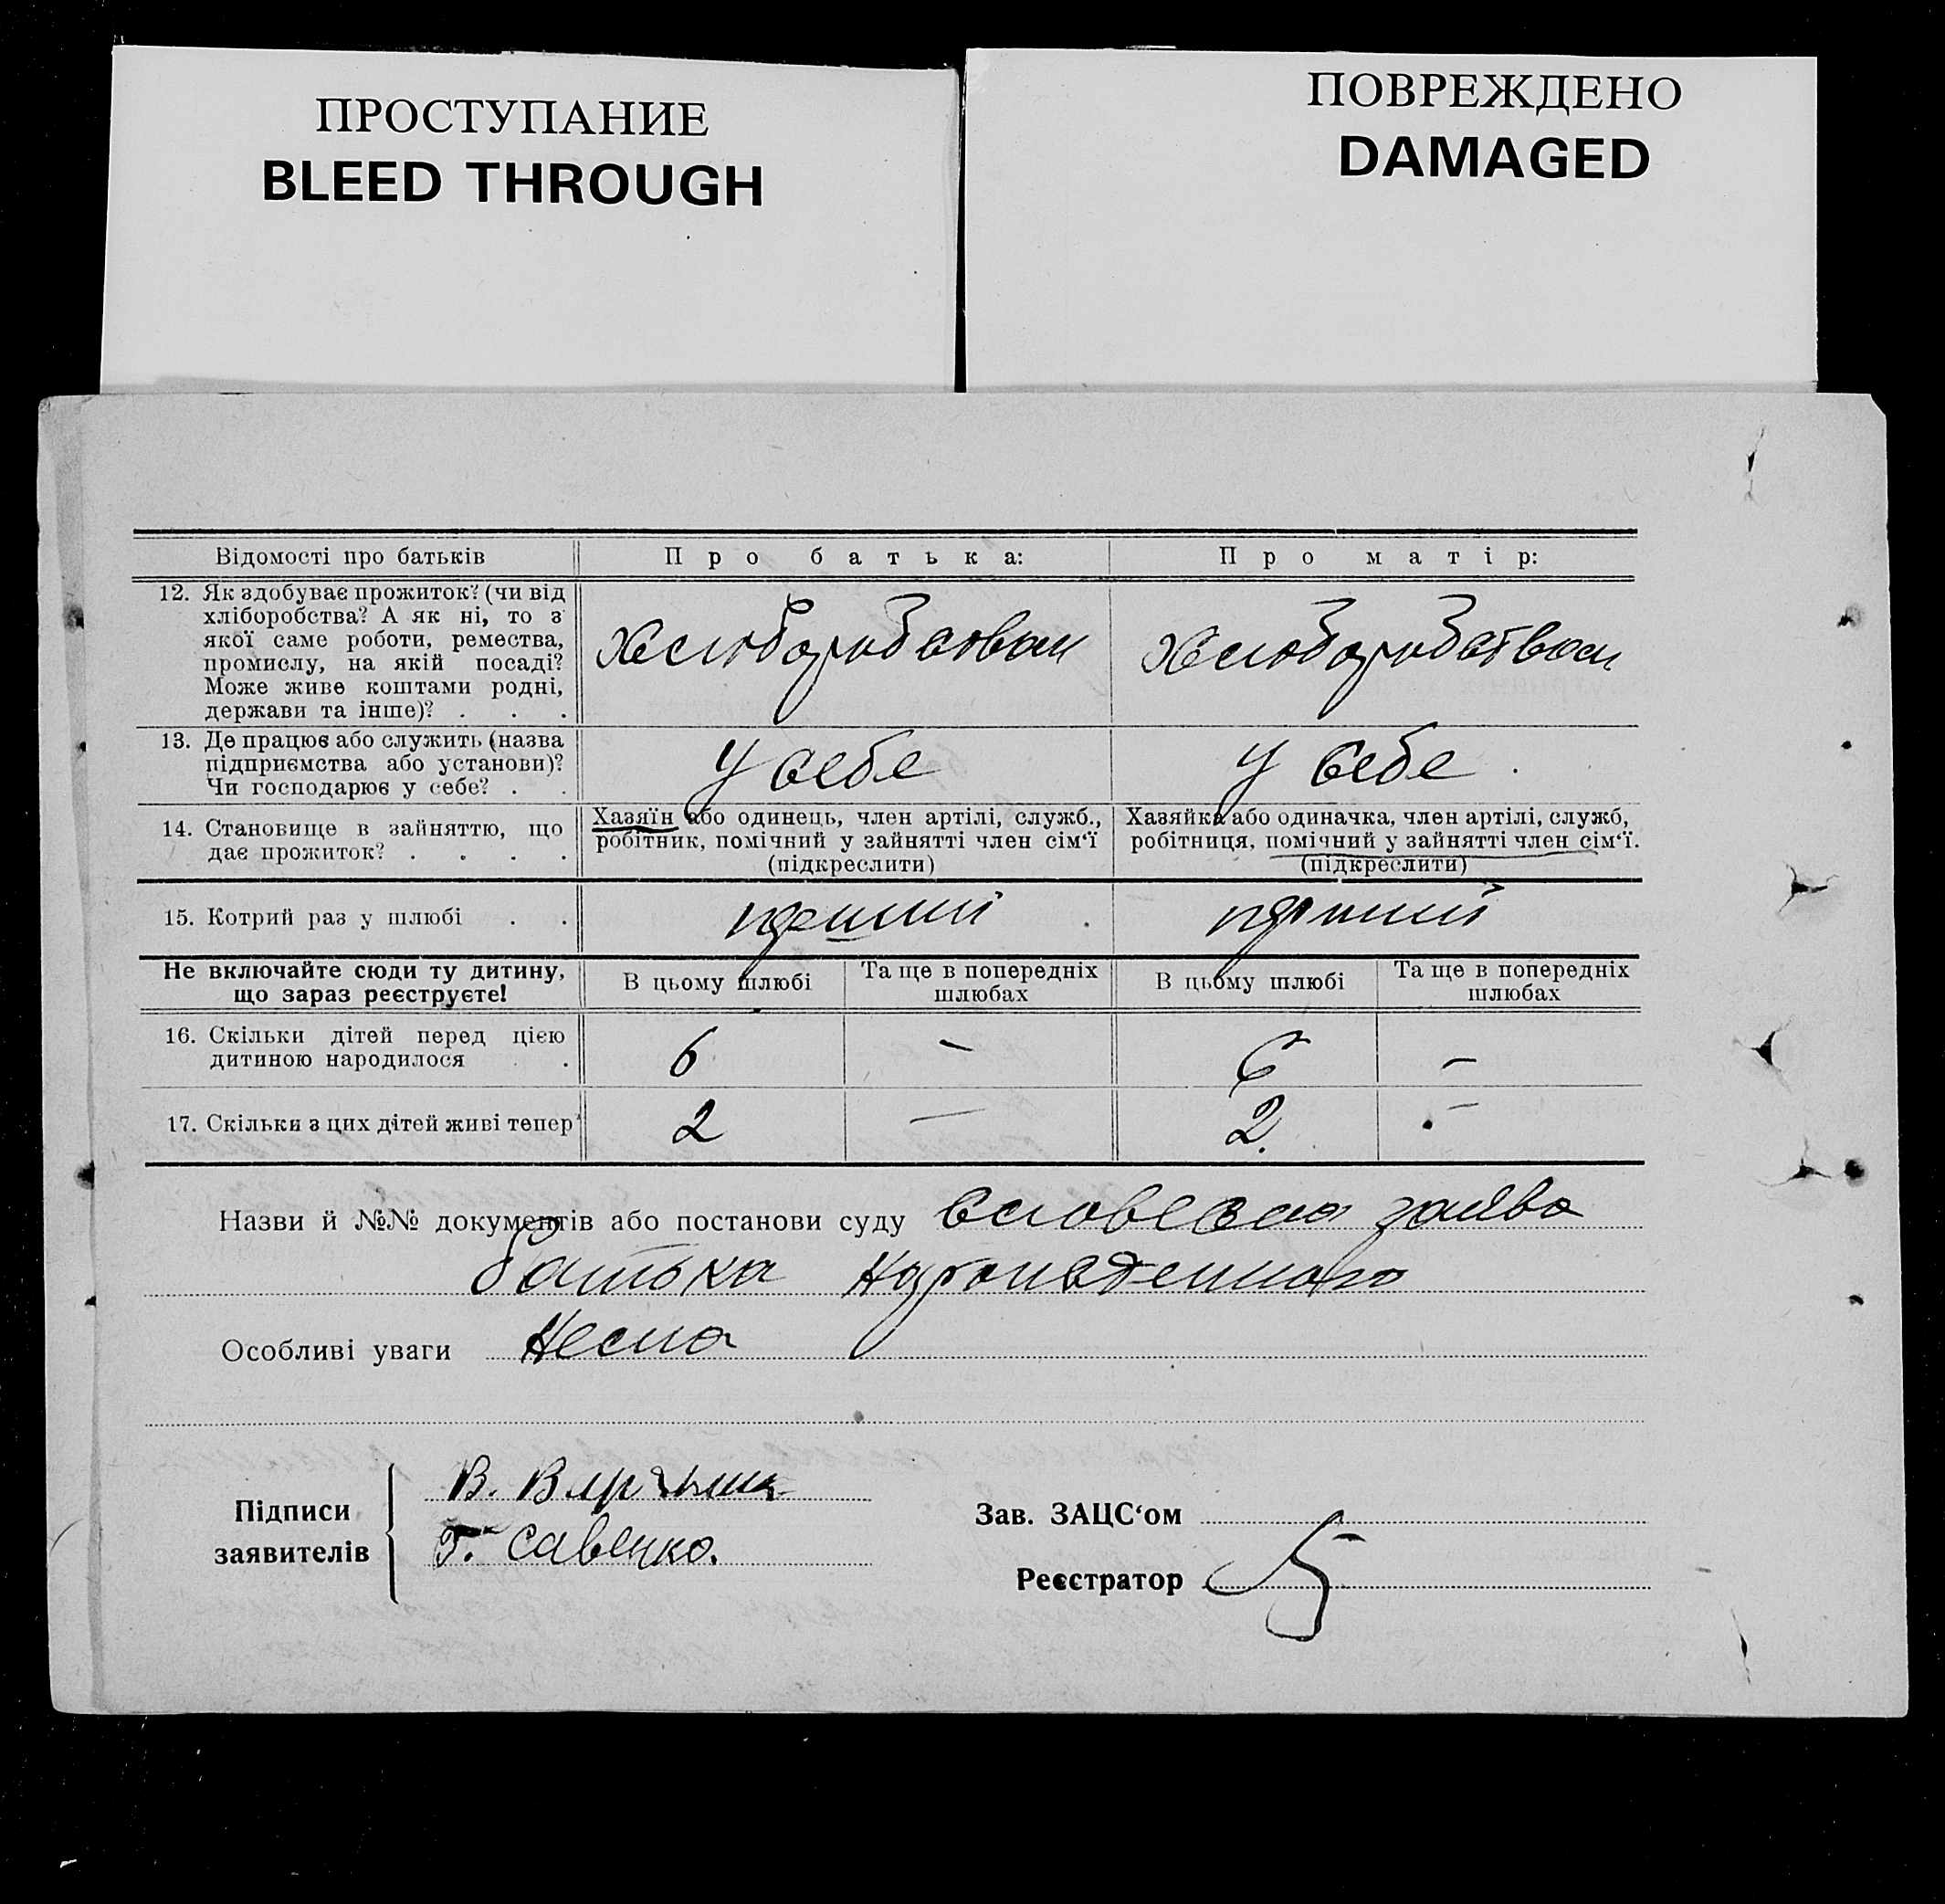 ПРОСТУПАНИЕ
BLEED THROUGH
ПОВРЕЖДЕНО
DAMAGED
Відомості про батьків
Про батька:
Про матір:
12. Як здобуває прожиток? (чи від
хліборобства? А як ні, то з
якої саме роботи, ремества,
промислу, на якій посаді?
Може живе коштами родні,
держави та інше)? . . .
13. Де працює або служить (назва
підприємства або установи)?
Чи господарює у себе? . .
у себе
у себе.
14. Становище в зайняттю, що
дає прожиток? . . . .
Хазяїн або одинець, член артілі, служб.,
робітник, помічний у зайнятті член сім‘ї
(підкреслити)
Хазяйка або одиначка, член артілі, служб,
робітниця, помічний у зайнятті член сім‘ї.
(підкреслити)
15. Котрий раз у шлюбі . .
перший
Не включайте сюди ту дитину,
що зараз реєструєте!
В цьому шлюбі
Та ще в попередніх
шлюбах
В цьому шлюбі
Та ще в попередніх
шлюбах
16. Скільки дітей перед цією
дитиною народилося .
6
–
6
–
17. Скільки з цих дітей живі тепер
2
–
2.
–
Назви й №№ документів або постанови суду словесна заява
батька
Особливі уваги Нема
Підписи
заявителів
В.
Г. Савенко.
Зав. ЗАЦС‘ом
Реєстратор